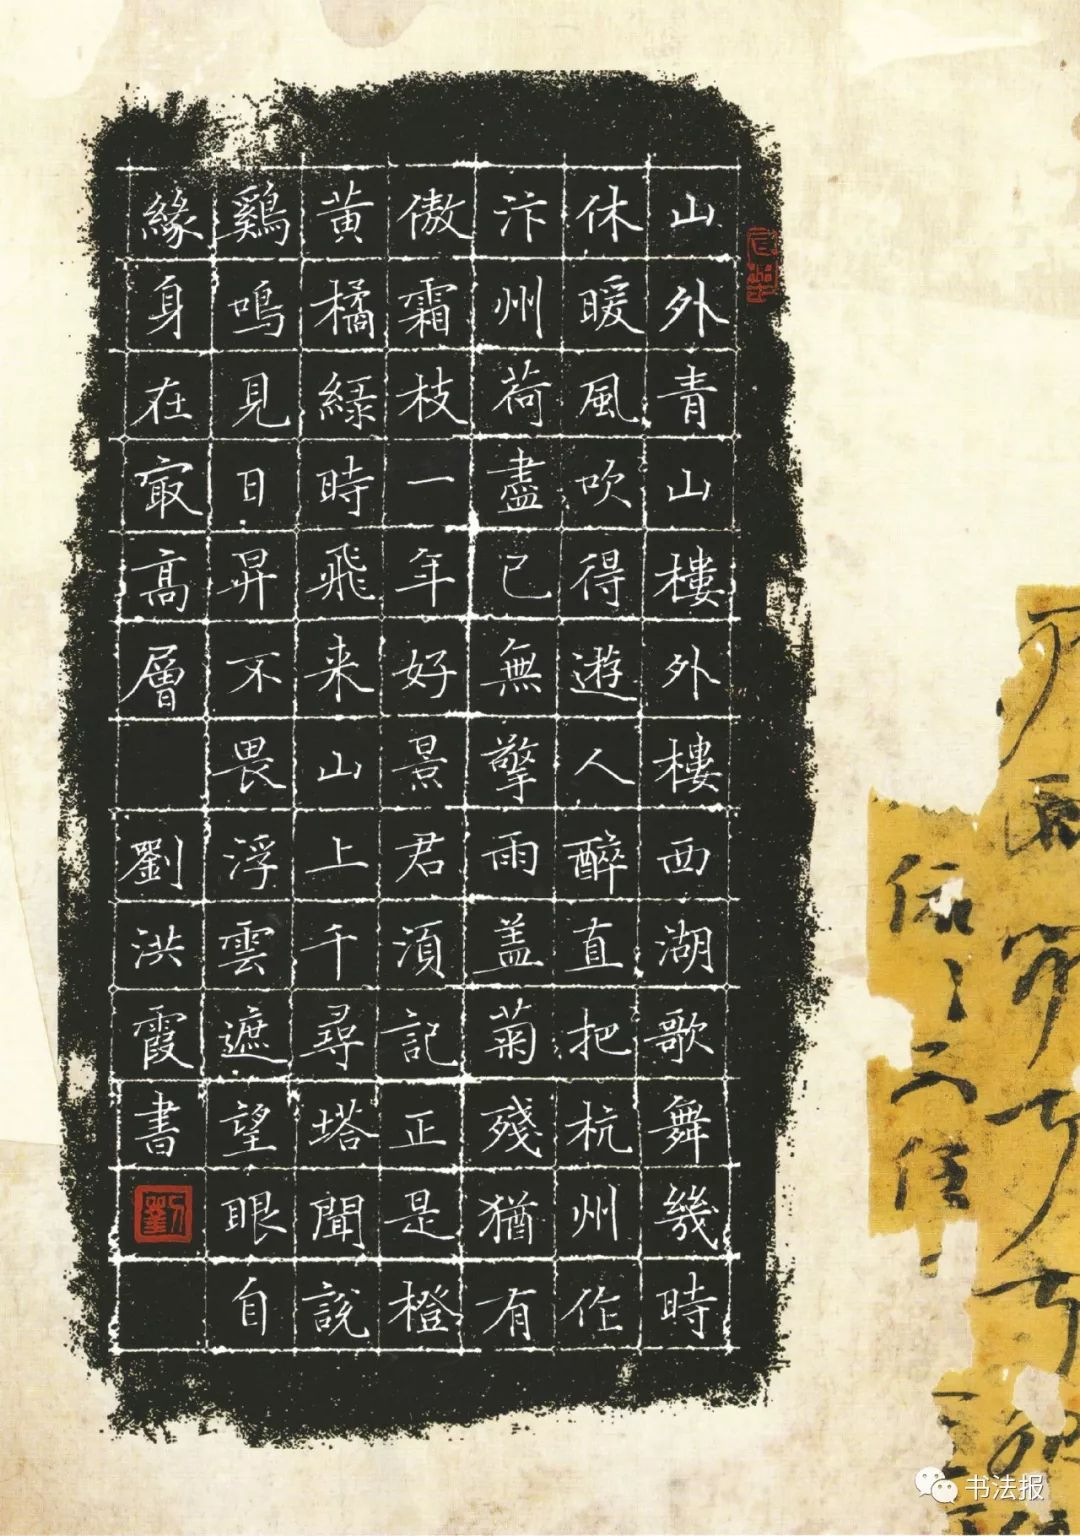 山外青山樓外樓西湖歌舞幾時
休暖風吹得遊人醉直把杭州作
汴州荷盡已無擎雨盖菊殘猶有
傲霜枝一年好景君須記正是橙
黄橘緑時飛来山上千尋塔聞説
鷄鳴見日昇不畏浮雲遮望眼自
緣身在冣高層 劉洪霞書
劉
书法报